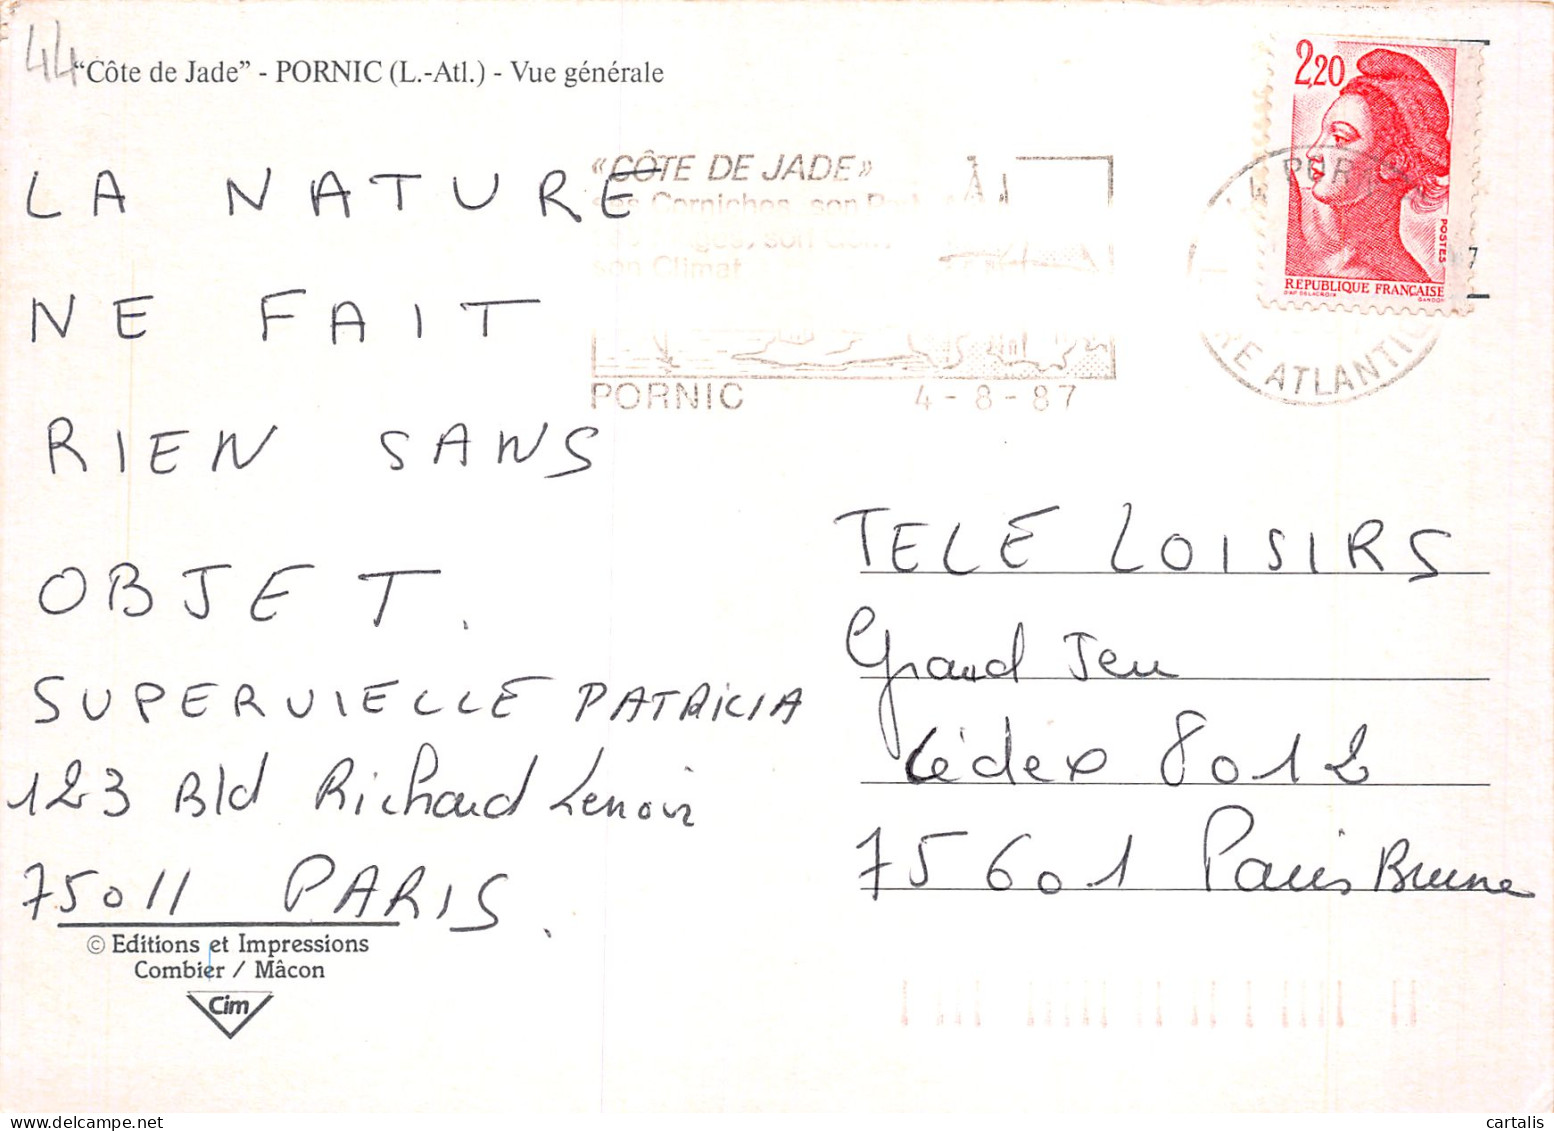 44
"Côte de Jade" - PORNIC (L.-Atl.) - Vue générale
LA NATURE
NE FAIT
RIEN SANS
OBJET.
SUPERVIELLE PATRICIA
123 Bld Richard Lenoir
75011 PARIS.
© Editions et Impressions
Combier / Mâcon
Cim
«CÔTE DE JADE»
ses Corniches, son
son
son Climat
PORNIC 4-8-87
2,20
POSTES
REPUBLIQUE FRANÇAISE
D'AP. DELACROIX GANDON
ATLANTIQ
TELE LOISIRS
Grand Jeu
Cédex 8012
75601 Paris Brune
cartalis